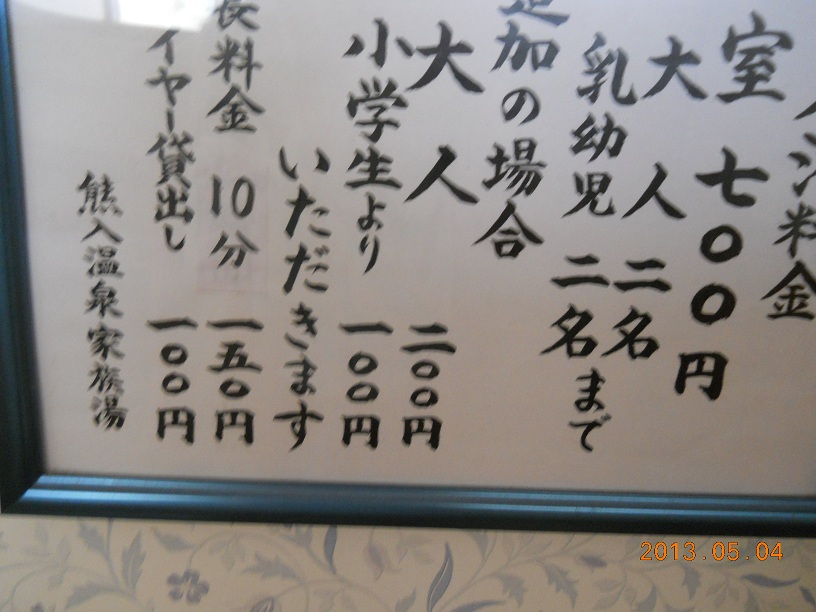 料金
室 七〇〇円
大人 二名
乳幼児 二名まで
追加の場合
大人 二〇〇円
小学生より 一〇〇円
いただきます
長料金 10分 一五〇円
イヤー貸出し 一〇〇円
熊入温泉家族湯
2013.05.04